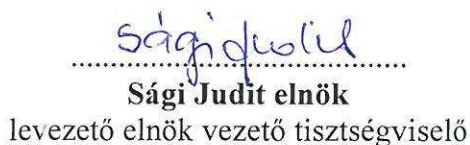 Sági Judit
Sági Judit elnök
levezető elnök vezető tisztségviselő